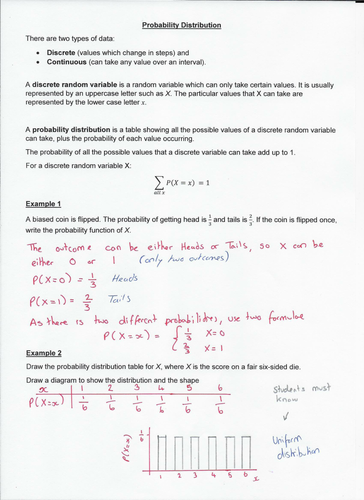 Probability Distribution
There are two types of data:
• Discrete (values which change in steps) and
• Continuous (can take any value over an interval).
A discrete random variable is a random variable which can only take certain values. It is usually
represented by an uppercase letter such as X. The particular values that X can take are
represented by the lower case letter x.
A probability distribution is a table showing all the possible values of a discrete random variable
can take, plus the probability of each value occurring.
The probability of all the possible values that a discrete variable can take add up to 1.
For a discrete random variable X:
∑ P(X = x) = 1
all x
Example 1
A biased coin is flipped. The probability of getting head is 1/3 and tails is 2/3. If the coin is flipped once,
write the probability function of X.
The outcome can be either Heads or Tails, so X can be
either 0 or 1 (only two outcomes)
P(X=0) = 1/3 Heads
P(X=1) = 2/3 Tails
As there is two different probabilities, use two formulae
P(X=x) = { 1/3 X=0
2/3 X=1
Example 2
Draw the probability distribution table for X, where X is the score on a fair six-sided die.
Draw a diagram to show the distribution and the shape
x 1 2 3 4 5 6
P(X=x) 1/6 1/6 1/6 1/6 1/6 1/6
Students must
know
Uniform
distribution
P(X=x)
1/6
1 2 3 4 5 6 x